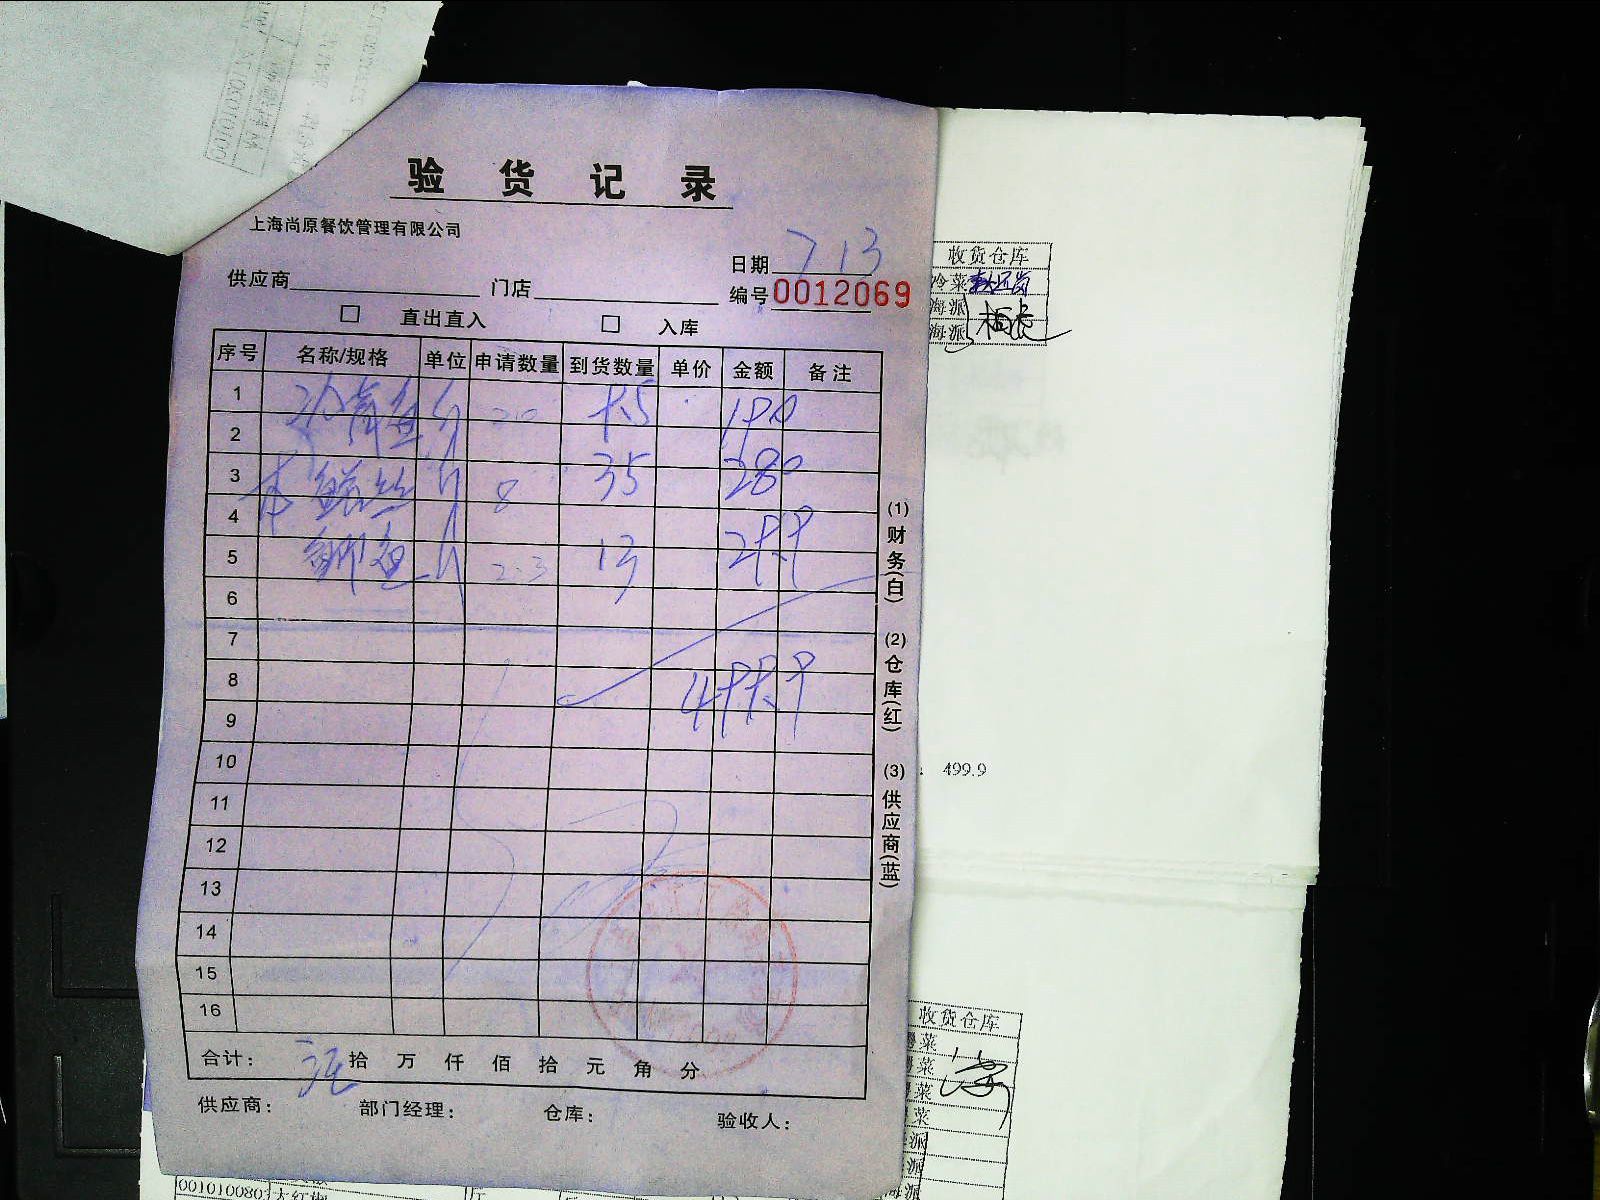 验货记录
上海尚原餐饮管理有限公司
日期 7 13
供应商 门店 编号 0012069
□ 直出直入 □ 入库
序号 名称/规格 单位 申请数量 到货数量 单价 金额 备注
1 青鱼 斤 20 9.5 190
2
3 鳝丝 斤 8 35 280
4
5 鲫鱼 斤 2.3 13 29.9
6
7
8 499.9
9
10
11
12
13
14
15
16
合计: 拾 万 仟 佰 拾 元 角 分
供应商: 部门经理: 仓库: 验收人:
(1)财务(白) (2)仓库(红) (3)供应商(蓝)
收货仓库
冷菜
海派
海派
: 499.9
收货仓库
菜
菜
菜
菜
派
派
海派
001010080 大红椒